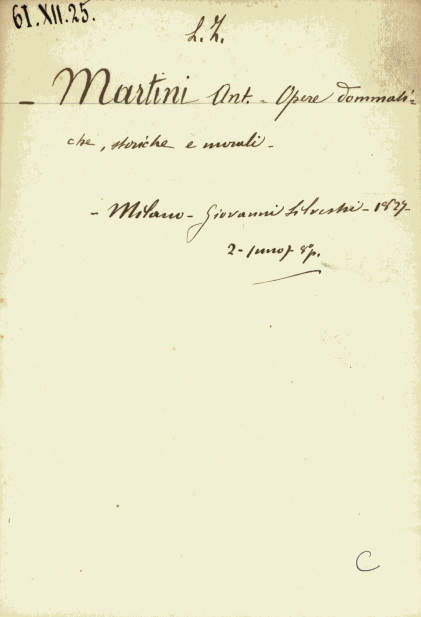 61.XII.25.
L. Z.
- Martini Ant. - Opere dommati=
che, storiche e morali -
- Milano - Giovanni Silvestri - 1827-
2 -
C